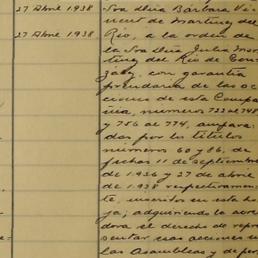 27 Abril 1938 Sra Dña Bárbara Vi-
nent de Martínez del
27 Abril 1938 Río, a la orden de
la Sra Dña Julia Mar-
tínez del Río de Gon-
con garantía
prendaria de las ac-
ciones de esta Compa-
ñía, números 733 al 748
y 756 al 774, ampara-
das por los títulos
números 60 y 86, de
fechas 11 de septiembre
de 1936 y 27 de abril
de 1938 respectivamen-
te, inscritos en esta ho-
ja; adquiriendo la acree-
dora el derecho de repre-
sentar esas acciones en
las Asambleas y de per-